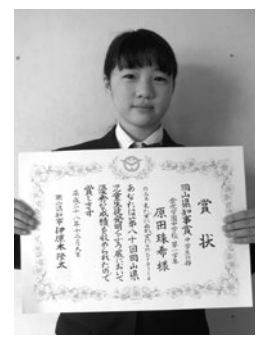 賞状
岡山県知事賞 中学生の部
金光学園中学校 第一学年
原田珠希様
あなたは第八十回岡山県
児童生徒発明くふう展において
優秀な成績を収められたので
賞します
平成二十八年十二月九日
岡山県知事 伊原木隆太